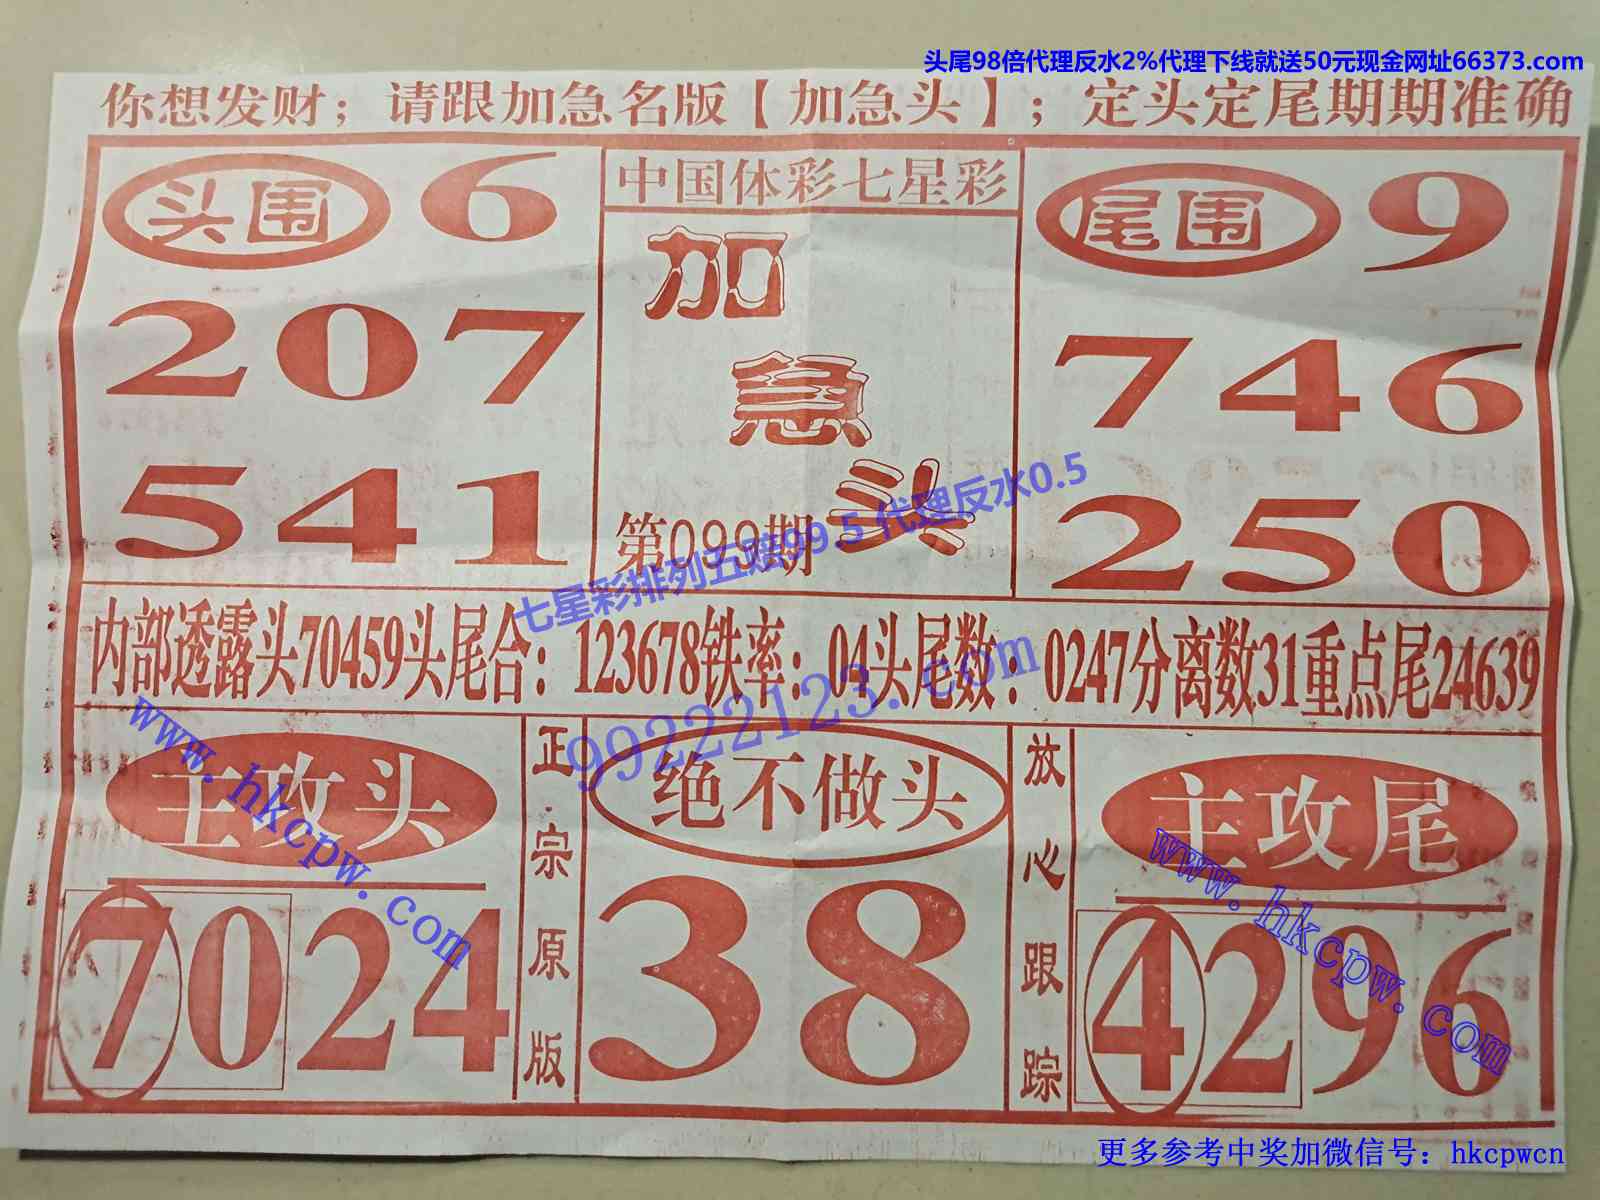 头尾98倍代理反水2%代理下线就送50元现金网址66373.com
你想发财；请跟加急名版【加急头】；定头定尾期期准确
头围 6
207
541
中国体彩七星彩
加
急
头
第099期
尾围 9
746
250
七星彩排列五赔99.5 代理反水0.5
内部透露头70459头尾合：123678铁率：04头尾数：0247分离数31重点尾24639
99222123.com
www.hkcpw.com
主攻头
7024
正宗原版
绝不做头
38
放心跟踪
主攻尾
4296
www.hkcpw.com
更多参考中奖加微信号：hkcpwcn